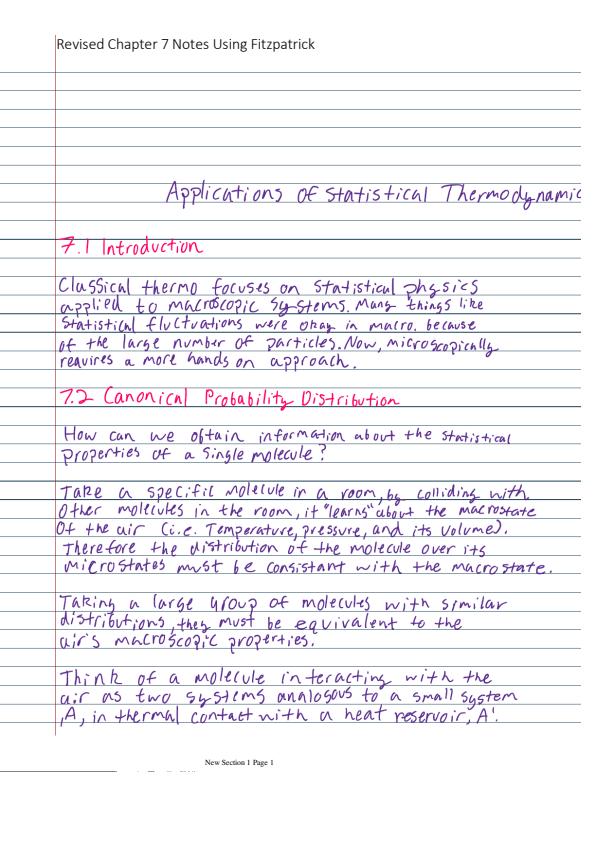 Revised Chapter 7 Notes Using Fitzpatrick
Applications of Statistical Thermodynamic
7.1 Introduction
Classical thermo focuses on Statistical physics
applied to macroscopic systems. Many things like
Statistical fluctuations were okay in macro. because
of the large number of particles. Now, microscopically
requires a more hands on approach.
7.2 Canonical Probability Distribution
How can we obtain information about the statistical
properties of a single molecule?
Take a specific molecule in a room, by colliding with
Other molecules in the room, it "learns" about the macrostate
Of the air (i.e. Temperature, pressure, and its volume).
Therefore the distribution of the molecule over its
Microstates must be consistant with the macrostate.
Taking a large group of molecules with similar
distributions, they must be equivalent to the
air's macroscopic properties.
Think of a molecule interacting with the
air as two systems analogous to a small system
,A, in thermal contact with a heat reservoir, A'.
New Section 1 Page 1